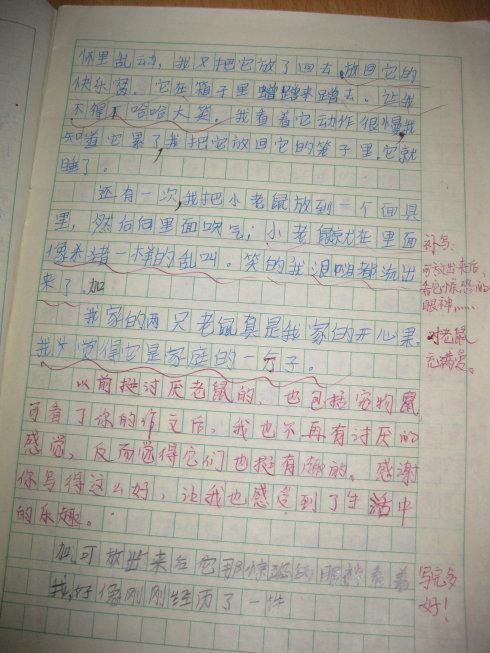 怀里乱动，我又把它放了回去，放回它的
快乐窝。它在箱子里蹭蹭来蹭去。让我
不得了哈哈大笑。我看着它动作很慢我
知道它累了，我把它放回它的笼子里它就
睡了。
还有一次，我把小老鼠放到一个面具
里，然后向里面吹气，小老鼠就在里面
像杀猪一样的乱叫。笑的我泪哨都流出
来了。加
我家的两只老鼠真是我家的开心果，
我 觉得它是家庭的一分子。
以前挺讨厌老鼠的，也包括宠物鼠，
可看了你的作文后，我也不再有讨厌的
感觉，反而觉得它们也挺有趣的。感谢
你写得这么好，让我也感受到了生活中
的乐趣。
加可放出来后它 惊恐的眼神看着
我好像刚刚经历了一件
补写：
可放出来后，
看它惊恐的
眼神……
对老鼠
充满爱。
写完多
好！